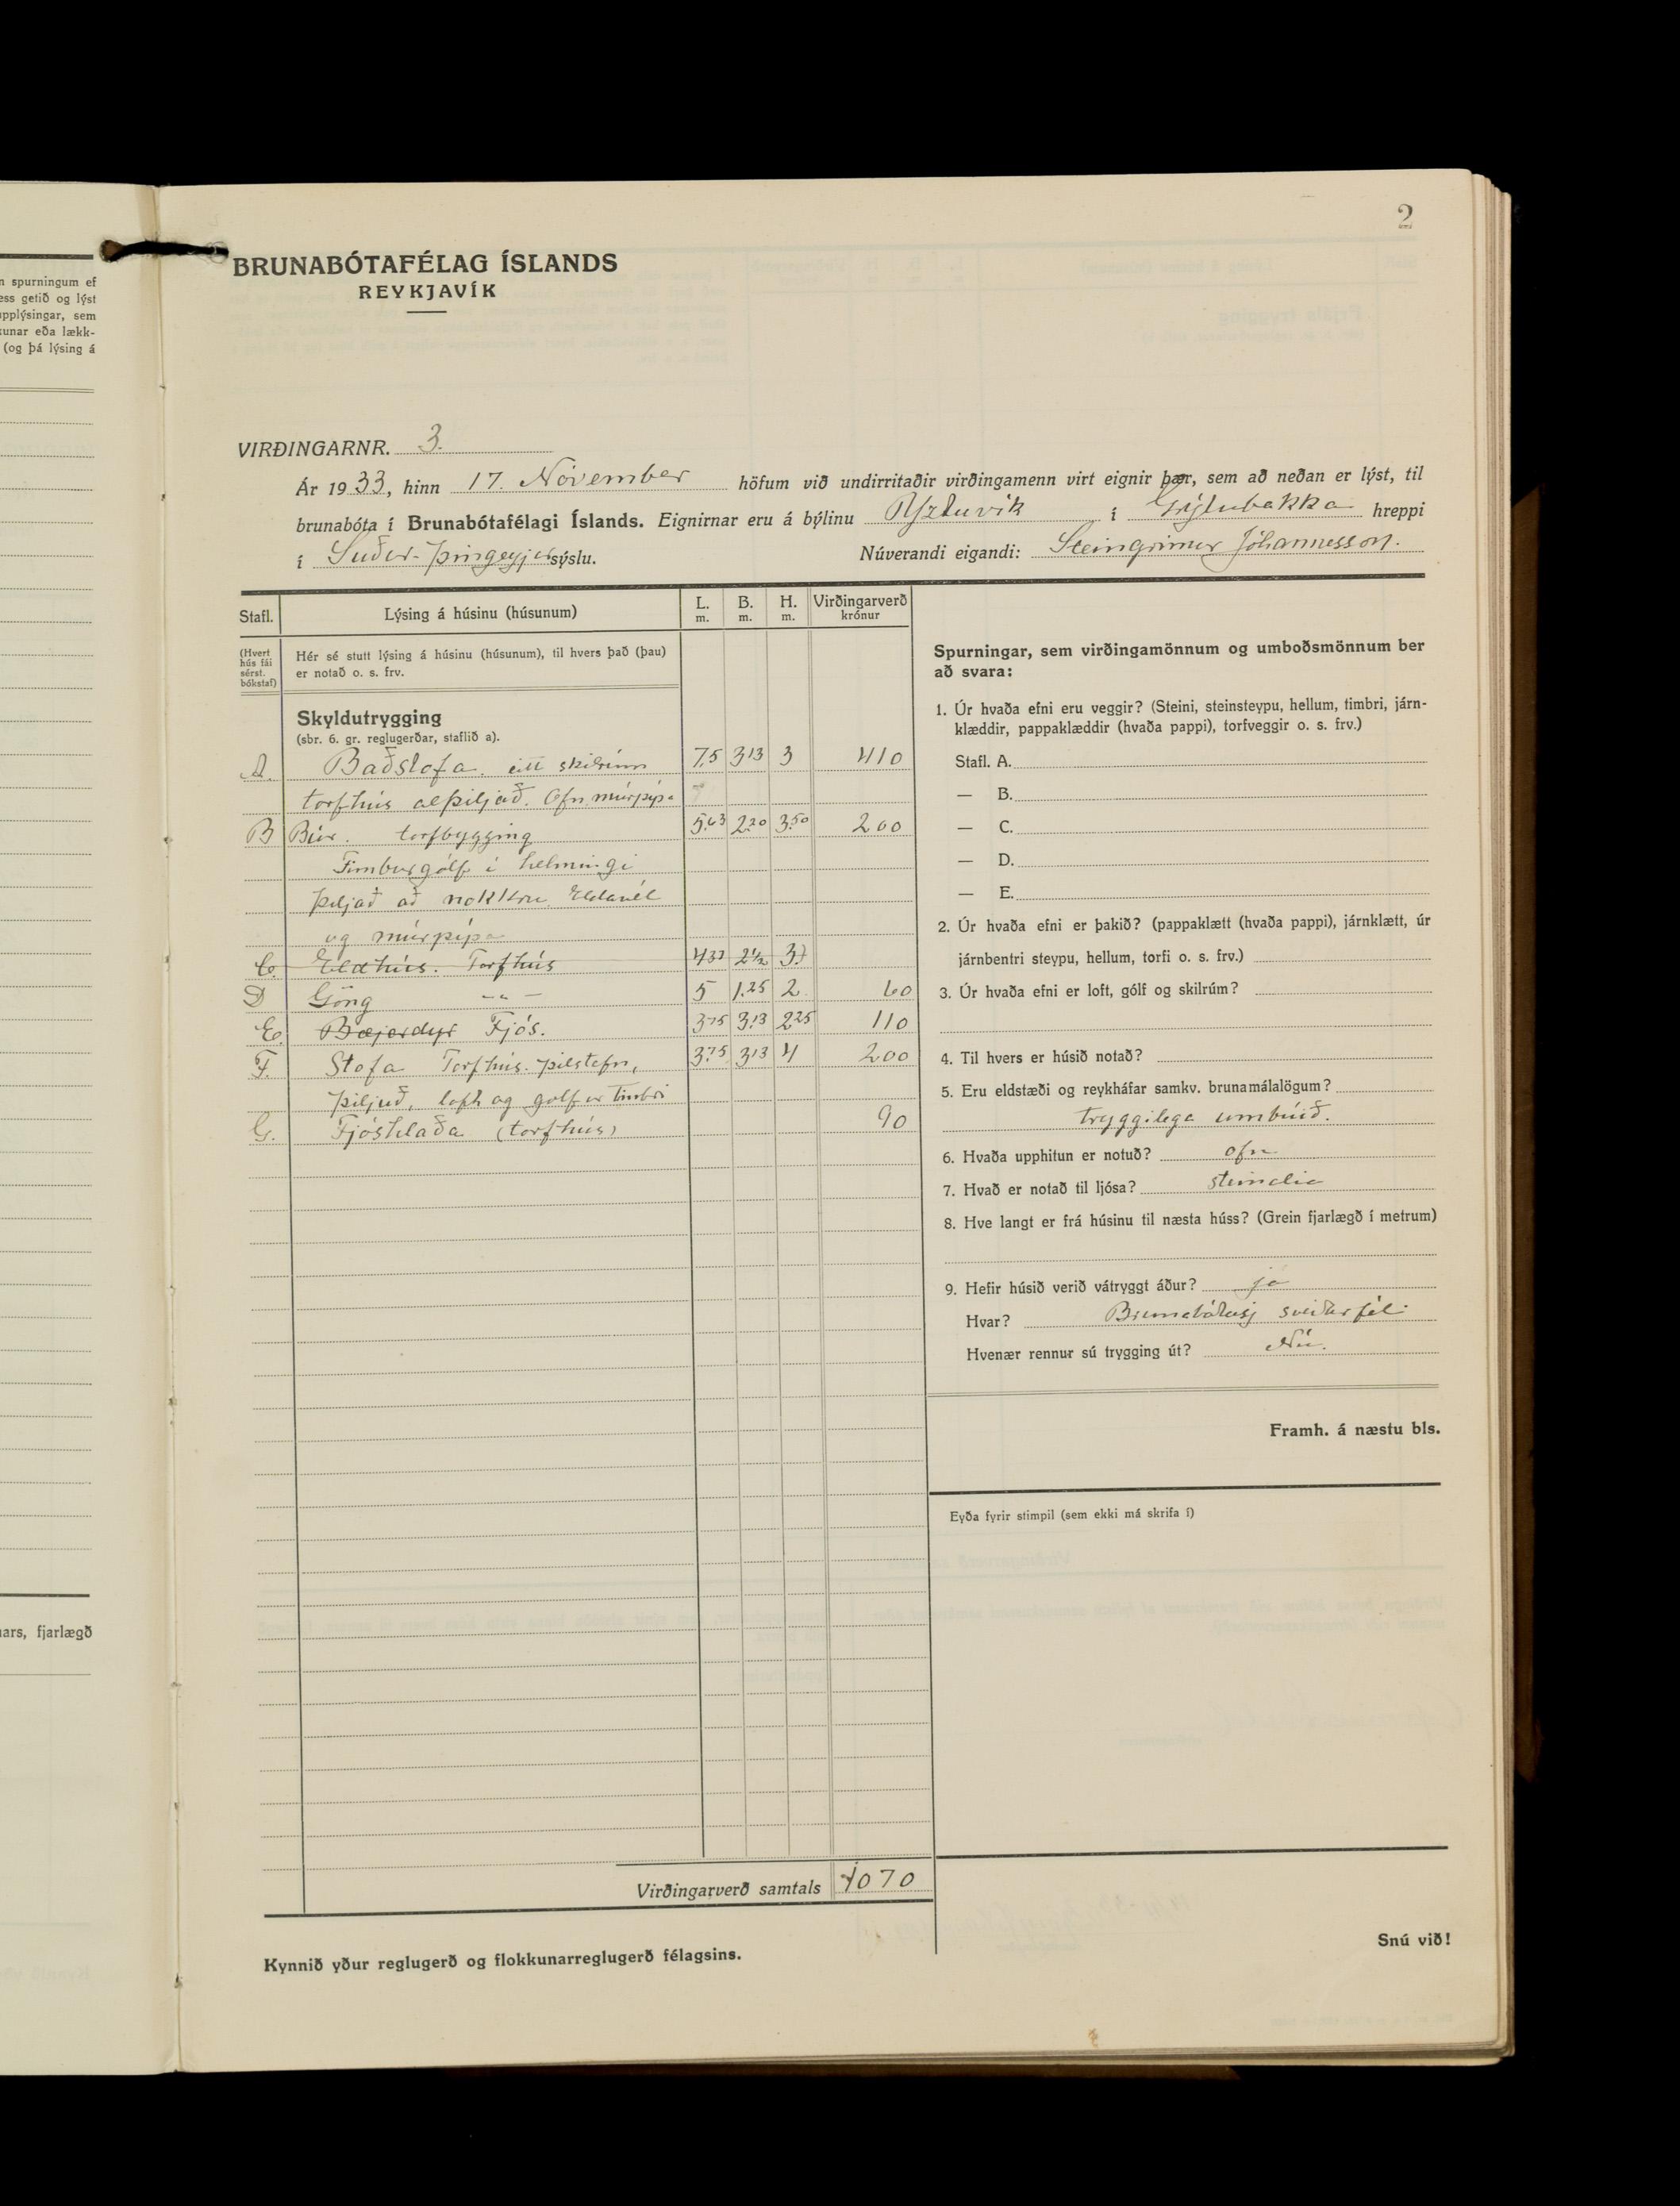 2
n spurningum ef
ess getið og lýst
upplýsingar, sem
kunar eða lækk-
(og þá lýsing á
ars, fjarlægð
BRUNABÓTAFÉLAG ÍSLANDS
REYKJAVÍK
VIRÐINGARNR. 3.
Ár 1933, hinn 17. Nóvember höfum við undirritaðir virðingamenn virt eignir þær, sem að neðan er lýst, til
brunabóta í Brunabótafélagi Íslands. Eignirnar eru á býlinu Yztuvík í Grýtubakka hreppi
í Suður-Þingeyjar sýslu. Núverandi eigandi: Steingrímur Jóhannesson.
Stafl. Lýsing á húsinu (húsunum) L. m. B. m. H. m. Virðingarverð krónur
(Hvert hús fái sérst. bókstaf)
Hér sé stutt lýsing á húsinu (húsunum), til hvers það (þau)
er notað o. s. frv.
Skyldutrygging
(sbr. 6. gr. reglugerðar, staflið a).
A. Baðstofa. eitt skilrúm 7.5 3.13 3 410
torfhús alþiljað. Ofn múrpípa
B Búr. torfbygging 5.63 2.20 3.50 200
Timburgólf í helmingi
þiljað að nokkru Eldavél
og múrpípa
C. Eldhús. Torfhús 2½
D Göng -"- 5 1.25 2 60
E. Bæjardyr Fjós. 3.75 3.13 2.25 110
F. Stofa Torfhús. þilstafn, 3.75 3.13 4 200
þiljuð, loft og golf úr timbri
G. Fjóshlaða (torfhús) 90
Virðingarverð samtals 1070
Kynnið yður reglugerð og flokkunarreglugerð félagsins.
Spurningar, sem virðingamönnum og umboðsmönnum ber
að svara:
1. Úr hvaða efni eru veggir? (Steini, steinsteypu, hellum, timbri, járn-
klæddir, pappaklæddir (hvaða pappi), torfveggir o. s. frv.)
Stafl. A.
— B.
— C.
— D.
— E.
2. Úr hvaða efni er þakið? (pappaklætt (hvaða pappi), járnklætt, úr
járnbentri steypu, hellum, torfi o. s. frv.)
3. Úr hvaða efni er loft, gólf og skilrúm?
4. Til hvers er húsið notað?
5. Eru eldstæði og reykháfar samkv. brunamálalögum?
tryggilega umbúið.
6. Hvaða upphitun er notuð? ofn
7. Hvað er notað til ljósa? steinolia
8. Hve langt er frá húsinu til næsta húss? (Grein fjarlægð í metrum)
9. Hefir húsið verið vátryggt áður? já
Hvar?
Hvenær rennur sú trygging út? Nú.
Framh. á næstu bls.
Eyða fyrir stimpil (sem ekki má skrifa í)
Snú við!